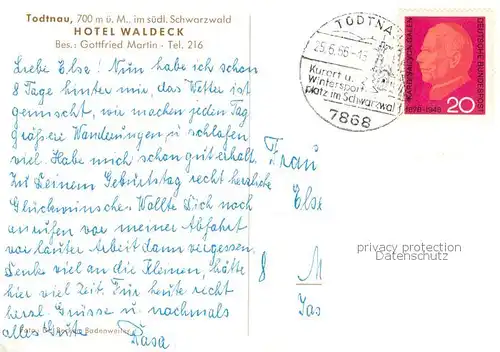 Todtnau, 700 m ü. M., im südl. Schwarzwald
HOTEL WALDECK
Bes.: Gottfried Martin - Tel. 216
Liebe Else! Nun habe ich schon
8 Tage hinter mir, das Wetter ist
gemischt, wir machen jeden Tag
größere Wanderungen u schlafen
viel. Habe mich schon gut erholt.
Zu Deinem Geburtstag recht herzliche
Glückwünsche. Wollte Dich noch
anrufen vor meiner Abfahrt
vor lauter Arbeit dann vergessen.
Denke viel an die Kleinen, hätte
hier viel Zeit. Für heute recht
herzl. Grüsse u nochmals
alles Gute
Badenweiler
TODTNA
25.6.66-15
Kurort u.
Wintersport
platz im Schwarzwal
7868
KARDINAL VON GALEN
DEUTSCHE BUNDESPOST
1878-1946
20
Frau
Else
8 M
privacy protection
Datenschutz